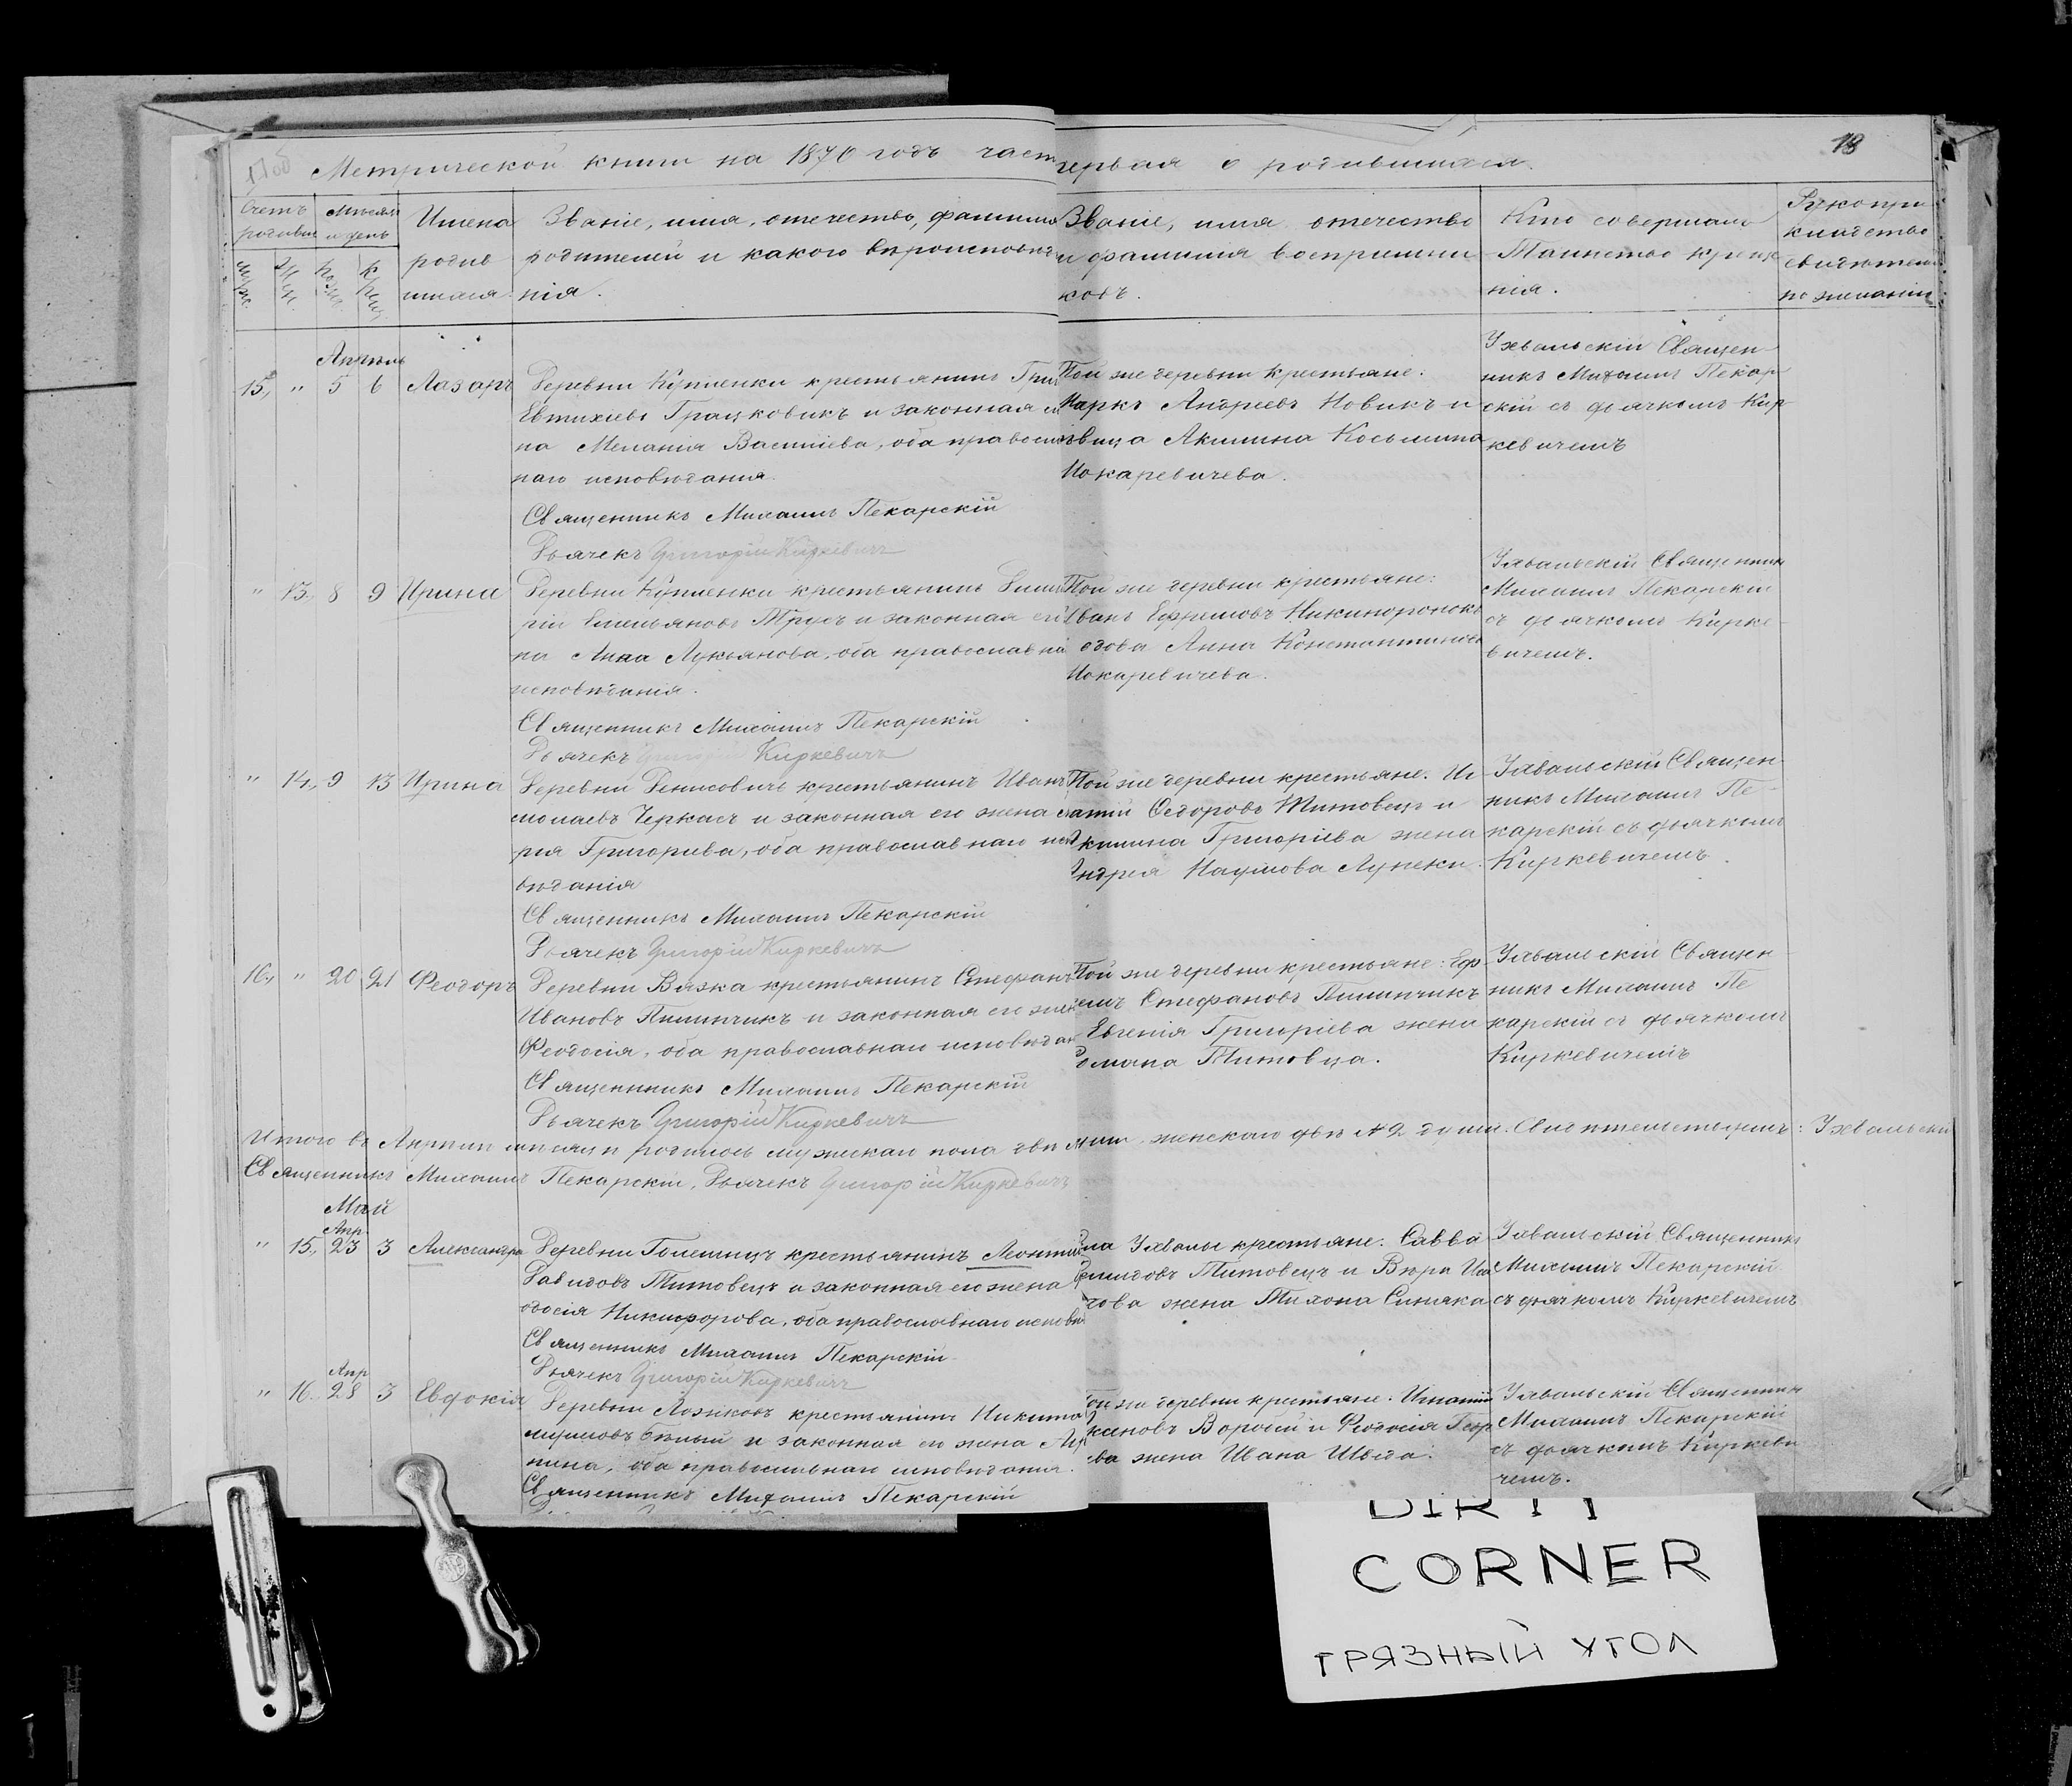 18
Метрической книги на 1870 годъ част
первая о родившихся.
Счетъ родивш
Мѣсяцъ и день
Имена родив шихся.
Званіе, имя, отечество, фамилія
родителей и какого вѣроисповѣд
нія.
Званіе, имя отечество
и фамилія воспріемни
ковъ.
Кто совершалъ
Таинство крещ
нія.
Рукопри
кладство
свидѣтелей
по желанію
Апрѣль
15, " 5 6 Лазарь
Деревни Купленки крестьянинъ Гри
Евтихіевъ Грацковикъ и законная
на Меланія Васильева, оба правосл
наго исповѣданія.
Священникъ Михаилъ Пекарскій
Дьячекъ Григорій Киркевичъ
Той же деревни крестьяне:
Маркъ Андреевъ Новикъ и
вица Акилина Косьмина
Мокаревичева.
Ухвальскій Священ
никъ Михаилъ Пекар
скій съ дьячкомъ Кир
кевичемъ
" 13, 8 9 Ирина
Деревни Купленки крестьянинъ
рій Емельяновъ Трусъ и законная его
на Анна Лукьянова, оба православна
исповѣданія.
Священникъ Михаилъ Пекарскій
Дьячекъ Григорій Киркевичъ
Той же деревни крестьяне:
Иванъ Ефремовъ
вдова Анна Константинова
Мокаревичева.
Ухвальскій Священникъ
Михаилъ Пекарскій
съ дьячкомъ Кирке
вичемъ.
" 14, 9 13 Ирина
Деревни Денисовичъ крестьянинъ Иванъ
колаевъ Черкасъ и законная его жена
рія Григорьева, оба православнаго испо
вѣданія
Священникъ Михаилъ Пекарскій
Дьячекъ Григорій Киркевичъ
Той же деревни крестьяне. Иг
натій Ѳедоровъ Титовецъ и
Акилина Григоріева жена
Андрея Наумова Лупеки.
Ухвальскій Священ
никъ Михаилъ Пе
карскій съ дьячкомъ
Киркевичемъ.
16, " 20 21 Феодоръ
Деревни Вязка крестьянинъ Стефанъ
Ивановъ Пилипчикъ и законная его жен
Феодосія, оба православнаго исповѣдан
Священникъ Михаилъ Пекарскій
Дьячекъ Григорій Киркевичъ
Той же деревни крестьяне: Еф
емъ Стефановъ Пилипчикъ
Евгенія Григоріева жена
Романа Титовца.
Ухвальскій Священ
никъ Михаилъ Пе
карскій съ дьячкомъ
Киркевичемъ
Итого въ Апрѣлѣ мѣсяцѣ родилось мужскаго пола двѣ женскаго двѣ № 2 души. Свидѣтельствуемъ: Ухвальскій
Священникъ Михаилъ Пекарскій, Дьячекъ Григорій Киркевичъ
Май
Апр.
" 15, 23 3 Александра
Деревни Голешицъ крестьянинъ Леонтій
Давидовъ Титовецъ и законная его жена
одосія Никифорова, оба православнаго исповѣ
Священникъ Михаилъ Пекарскій
Дьячекъ Григорій Киркевичъ
Ухвалы крестьяне: Савва
Титовецъ и Вѣра
жена Тихона Синяка
Ухвальскій Священникъ
Михаилъ Пекарскій
съ дьячкомъ Киркевичемъ
Апр
" 16, 28 3 Евдокія
Деревни крестьянинъ Никита
и законная его жена
оба православнаго исповѣданія.
Священникъ Михаилъ Пекарскій
Той же деревни крестьяне: Игнатій
Воробей и Феодосія
ва жена Ивана Шведа.
Ухвальскій Священникъ
Михаилъ Пекарскій
съ дьячкомъ Киркеви
чемъ.
DIRTY
CORNER
ГРЯЗНЫЙ УГОЛ